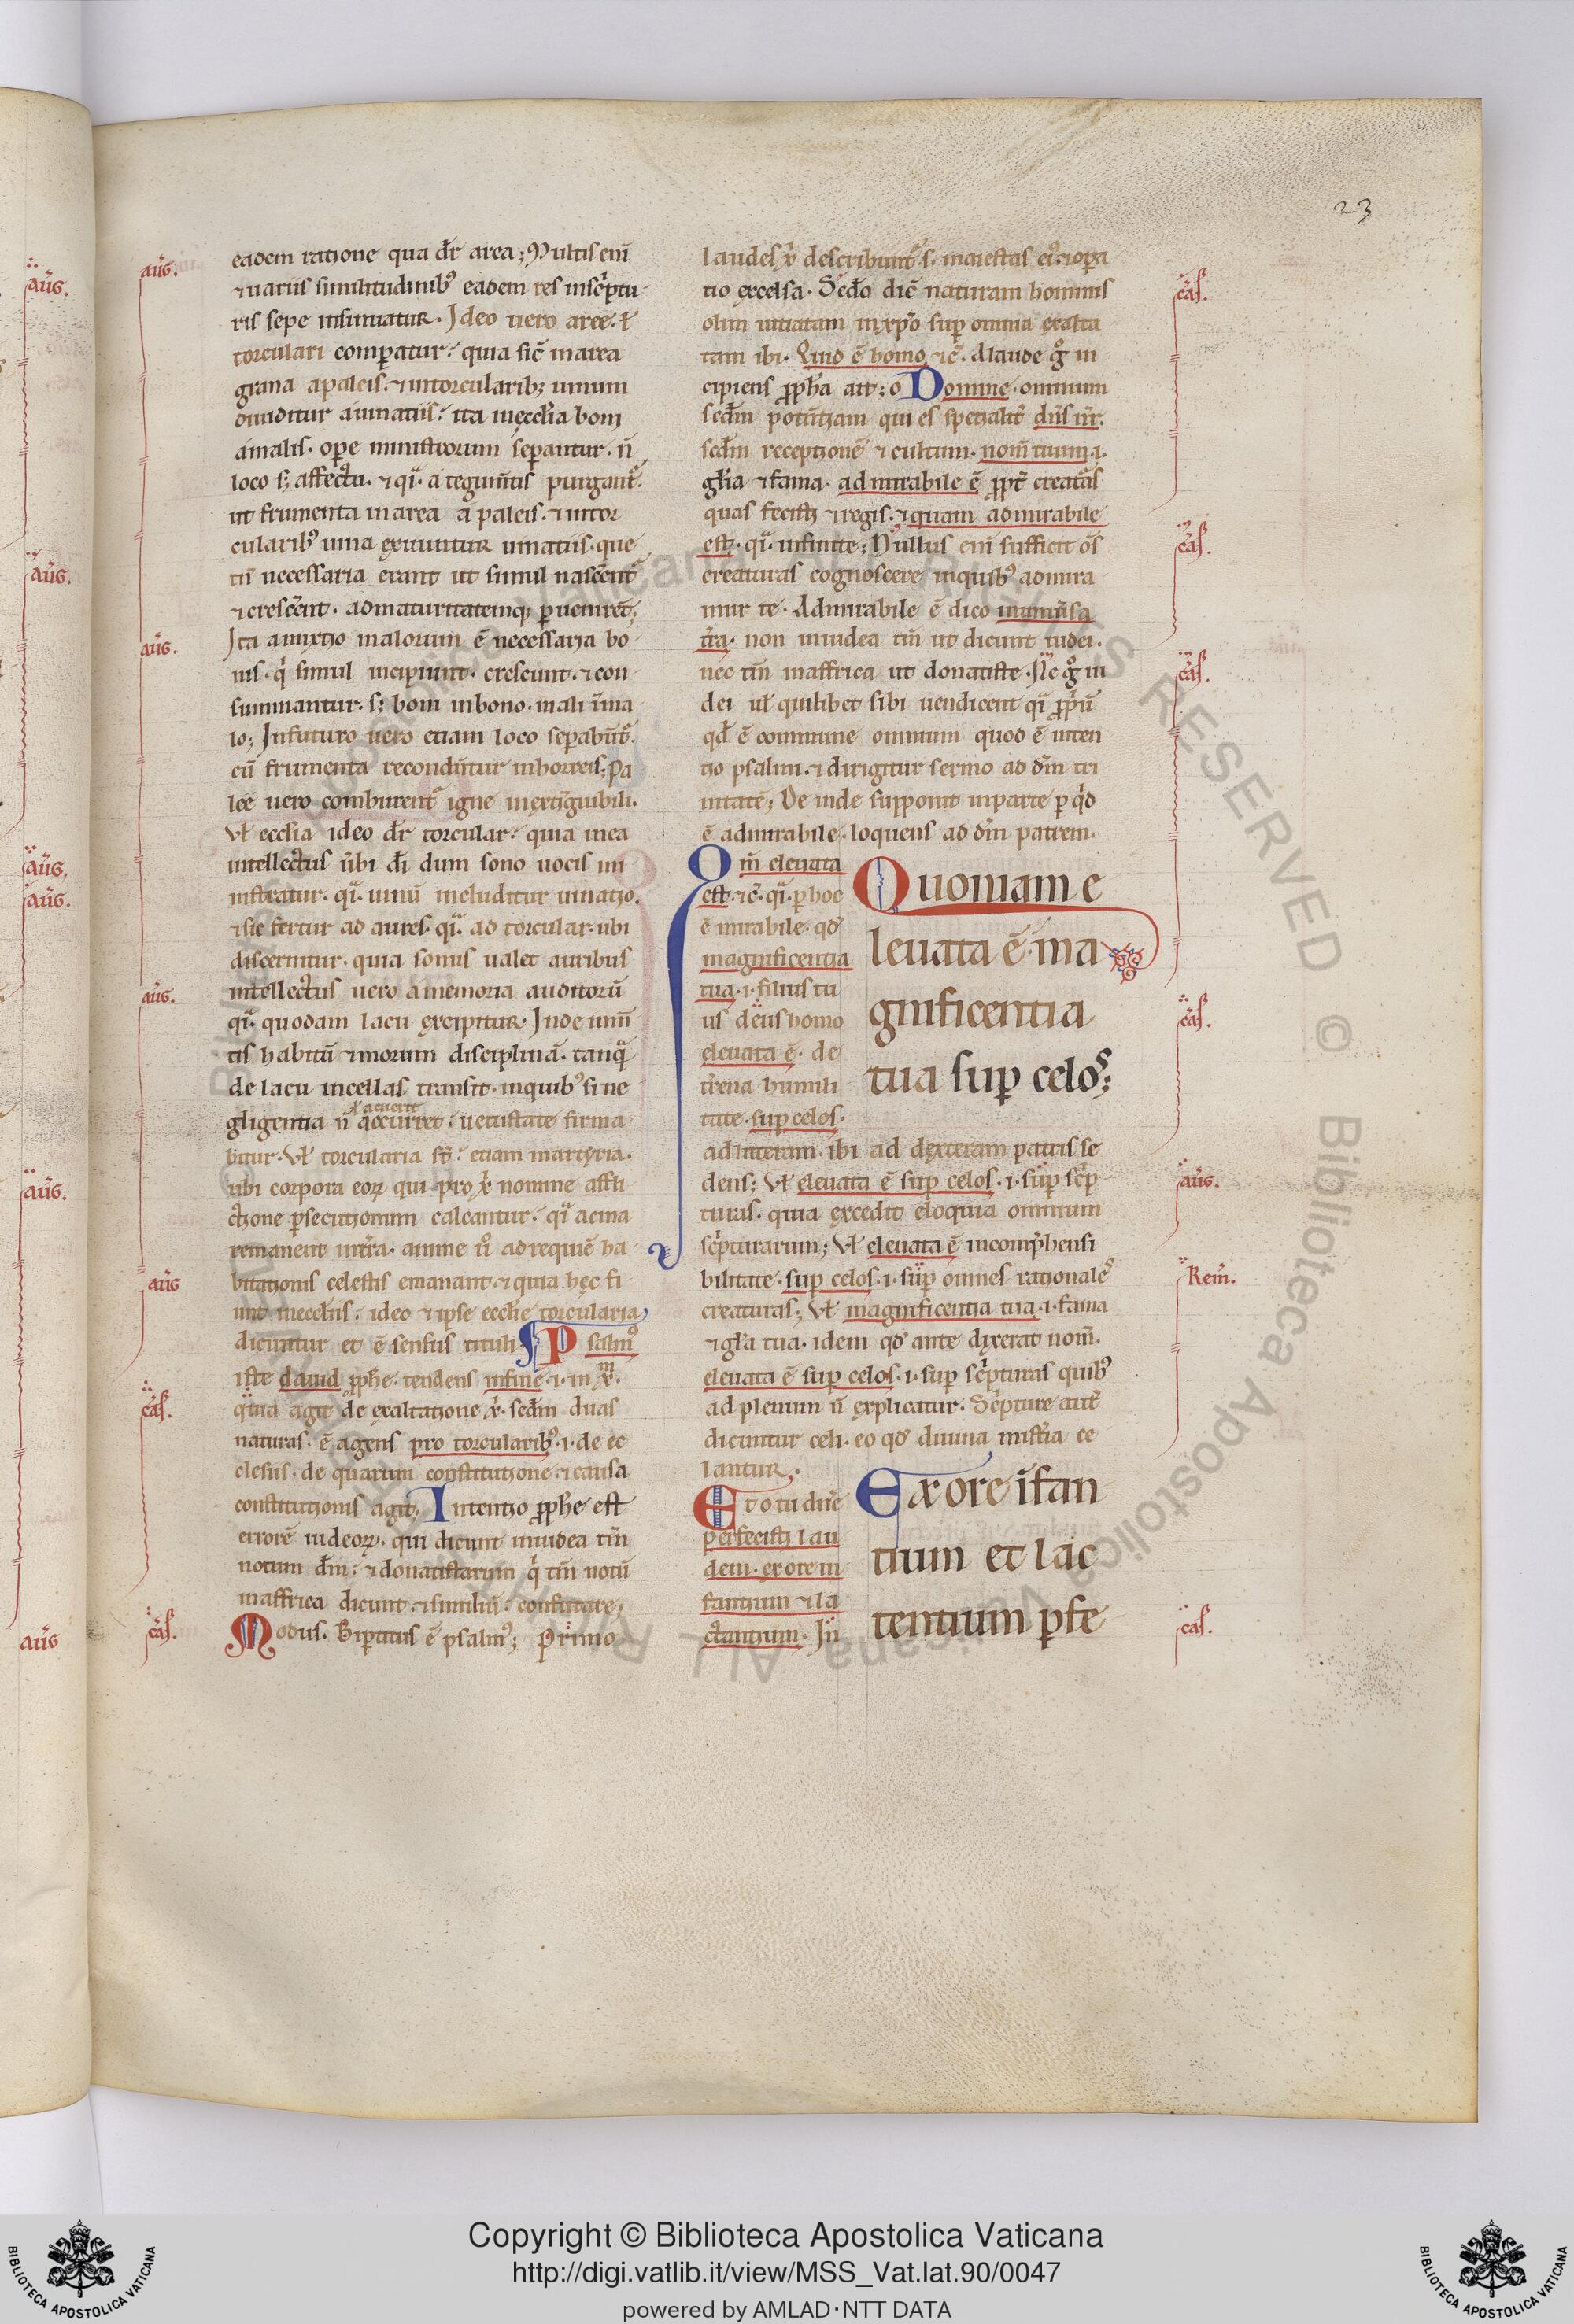 23
aug̅.
eadem ratione qua dr̅ area; Multis eni̅
⁊ uariis similitudinibꝰ eadem res inscptu-
ris sepe insinuatur. Ideo uero aree. ł
torculari comꝑatur: quia sic̅ in area
grana a paleis. ⁊ in torcularibꝫ uinum
diuiditur a uinatiis: ita in ęccl̅ia boni
a malis. oꝑe ministrorum seꝑantur. n̅
loco sꝫ affectu. ⁊ qi̅. a tegum̅tis purgant᷑.
ut frumenta in area a paleis. ⁊ in tor
cularibꝰ uina exuuntur uinatiis. que
tn̅ necessaria erant ut simul nasce̅nt᷑
⁊ cresce̅nt. ad maturitatemqꝫ ꝑuenire̅t;
aug̅.
Ita amixtio malorum e̅ necessaria bo-
nis. q simul incipiunt. crescunt. ⁊ con-
summantur. sꝫ boni in bono. mali i̅ ma
lo; In futuro uero etiam loco seꝑabu̅t᷑.
cu̅ frumenta recondu̅tur in horreis; Pa
lee uero comburent᷑ igne inextinguibili.
Vł ecclesia ideo dr̅ torcular: quia in ea
intellectus u̅bi di̅ dum sono uocis mi
nistratur. qi̅. uinu̅ includitur uinatio.
⁊ sic fertur ad aures. qi̅. ad torcular. ubi
discernitur. quia sonus ualet auribus
aug̅.
intellectus uero a memoria auditoru̅
qi̅. quodam lacu excipitur. Inde in m̅
tis habitu̅ ⁊ morum disciplina̅. tanq̅
de lacu in cellas transit. in quibꝰ si ne
gligentia n̅ accurret: uetustate firma
ł acuerit
bitur. Vł torcularia st̅: etiam martyria.
ubi corpora eoꝝ qui pro x̅ nomine affli
ctione ꝑsecutionum calcantur: qi̅ acina
remanent in tr̅a. anime u̅o ad requie̅ ha-
bitationis celestis emanant. ⁊ quia hęc fi
aug̅
unt in eccl̅iis: ideo ⁊ ipse ecclie̅ torcularia
dicuntur et e̅ sensus tituli. Psalmꝰ
iste dauid ꝓphe̅. tendens in fine̅ .i. in x̅m.
cas̅.
quia agit de exaltatione x̅. sedm̅ duas
naturas. e̅ agens pro torcularibꝰ .i. de ec
clesiis. de quarum constitutione ⁊ causa
constitutionis agit. Intentio ꝓphe̅ est
errore̅ iudeoꝝ. qui dicunt in iudea tm̅
notum dm̅: ⁊ donatistarum q tm̅ notu̅
in affrica dicunt. ⁊ similiu̅: confutare;
cas̅.
Modus. Biꝑtitus e̅ psalmꝰ; Primo
laudes x̅ describunt᷑ .s. maiestas eiꝰ. ⁊ oꝑa
cas̅.
tio excelsa. Secd̅o dic̅ naturam hominis
olim uitiatam in xp̅o suꝑ omnia exalta
tam ibi. Quid e̅ homo. ⁊c̅. A laude g in
cipiens ꝓph̅a ait; o Domine. omnium
sedm̅ potentiam qui es spetialit̅ dn̅s nr̅.
sedm̅ receptione̅ ⁊ cultum. nom̅ tuum .i.
gl̅ia ⁊ fama. admirabile e̅ ꝓpt̅ creatas
quas fecisti ⁊ regis. ⁊ quam admirabile
cas̅.
est. qi̅. infinite; Nullus eni̅ sufficit oe̅s
creaturas cognoscere in quibꝰ admira
mur te. Admirabile e̅ dico in uniu̅sa
tr̅a. non in iudea tm̅ ut dicunt iudei.
cas̅.
nec tm̅ in affrica ut donatiste. Ne̅ g iu
dei uł quilibet sibi uendicent qi̅ ꝓp̅u̅
qd̅ e̅ commune omnium quod e̅ inten
tio psalmi. ⁊ dirigitur sermo ad dm̅ tri
nitate̅; De inde supponit in parte ꝑ q̅d
e̅ admirabile. loquens ad dm̅ patrem.
Qm̅ eleuata
est. ⁊c̅. qi̅. ꝑ hoc
e̅ mirabile. qd̅
magnificentia
tua .i. filius tu
us deus homo
eleuata e̅. de
tr̅ena humili
tate. suꝑ celos.
Quoniam e
leuata e̅ ma
gnificentia
tua suꝑ celos;
cas̅.
ad litteram. ibi ad dexteram patris se
aug̅.
dens; Vł eleuata e̅ suꝑ celos .i. suꝑ scp̅
turas. quia excedit eloquia omnium
scp̅turarum; Vł eleuata e̅ incomp̅hensi
Rem̅.
bilitate. suꝑ celos .i. suꝑ omnes rationales
creaturas; Vł magnificentia tua .i. fama
⁊ gl̅a tua. idem qd̅ ante dixerat nom̅.
eleuata e̅ suꝑ celos .i. suꝑ scp̅turas quibꝰ
ad plenum n̅ explicatur. Scp̅ture aut̅
dicuntur celi. eo qd̅ diuina mist̅ia ce
lantur.
Et o tu dn̅e
perfecisti lau
dem. ex ore in
fantium ⁊ la
ctantium. In
Ex ore i̅fan
tium et lac
tentium ꝑfe
cas̅.
aug̅.
aug̅.
aug̅.
aug̅.
aug̅.
aug̅
Copyright © Biblioteca Apostolica Vaticana
http://digi.vatlib.it/view/MSS_Vat.lat.90/0047
powered by AMLAD·NTT DATA
BIBLIOTECA APOSTOLICA VATICANA
BIBLIOTECA APOSTOLICA VATICANA